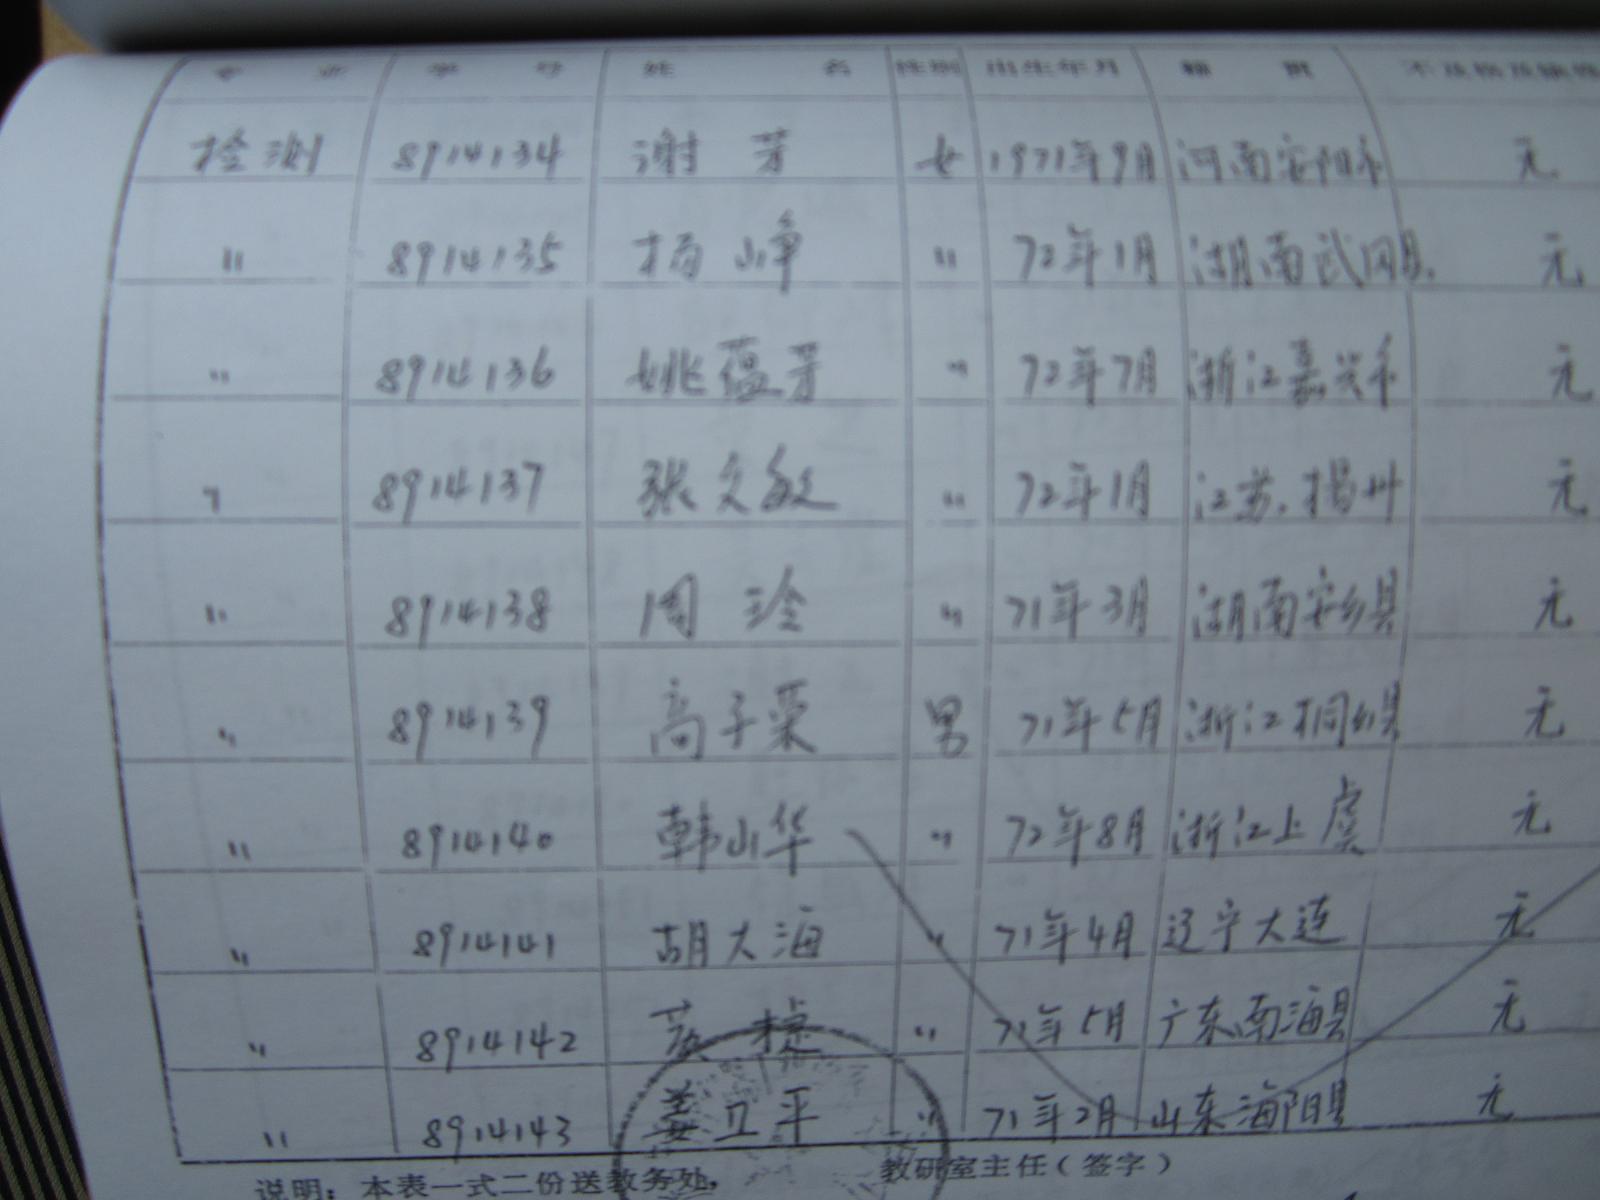 专 业 学 号 姓 名 性别 出生年月 籍 贯
检测 8914134 谢 芳 女 1971年9月 河南安阳市 无
〃 8914135 杨 峰 〃 72年1月 湖南武冈县. 无
〃 8914136 姚蕴芳 〃 72年7月 浙江嘉兴市 无
〃 8914137 张文敏 〃 72年1月 江苏.扬州 无
〃 8914138 周 玲 〃 71年3月 湖南安乡县 无
〃 8914139 高子栗 男 71年5月 浙江桐乡县 无
〃 8914140 韩山华 〃 72年8月 浙江上虞 无
〃 8914141 胡大海 〃 71年4月 辽宁大连 无
〃 8914142 〃 71年5月 广东南海县 无
〃 8914143 姜卫平 〃 71年2月 山东海阳县 无
说明：本表一式二份送教务处， 教研室主任（签字）